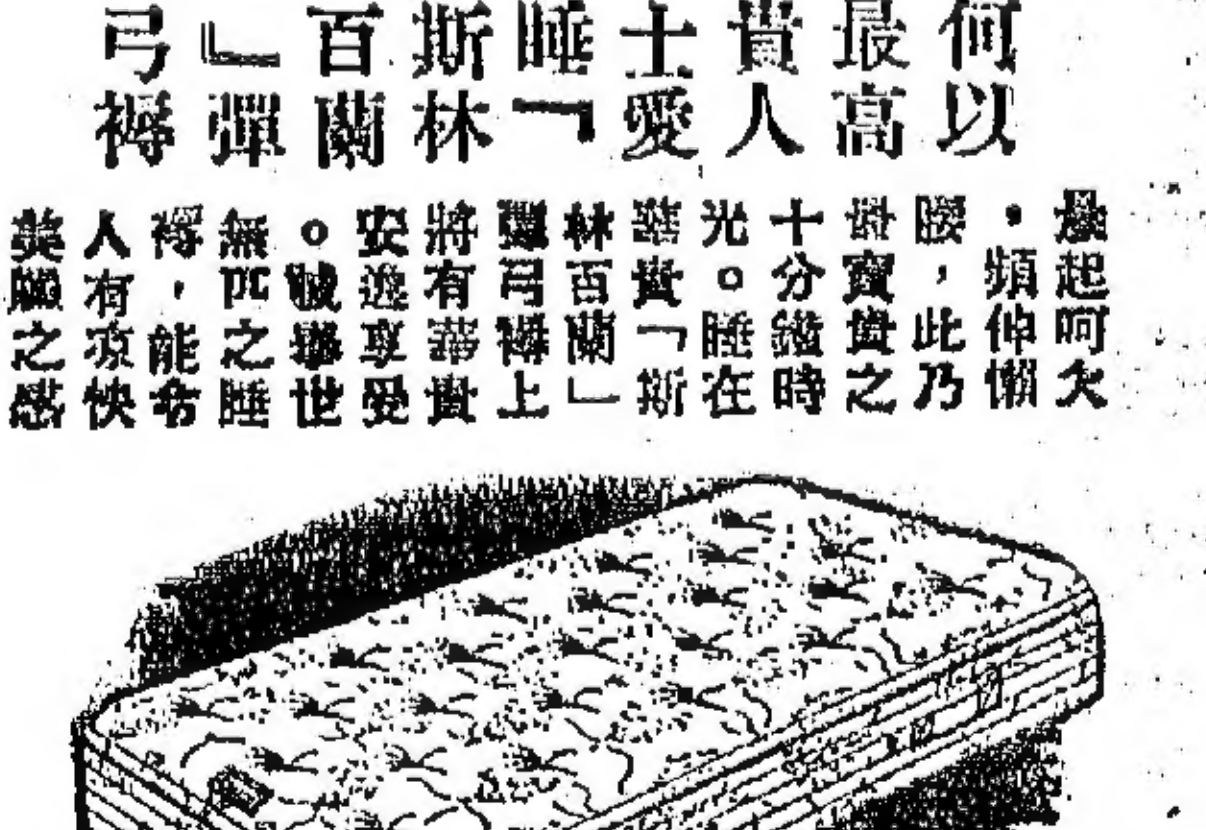 何以
最高
貴人
士愛
睡『
斯林
百蘭
』彈
弓褥
晨起呵欠
，頻伸懶
腰，此乃
寶貴之
十分鐘時
光。睡在
華貴「斯
林百蘭」
彈弓褥上
將有華貴
安逸享受
。誠舉世
無匹之睡
褥，能令
人有爽快
美之感